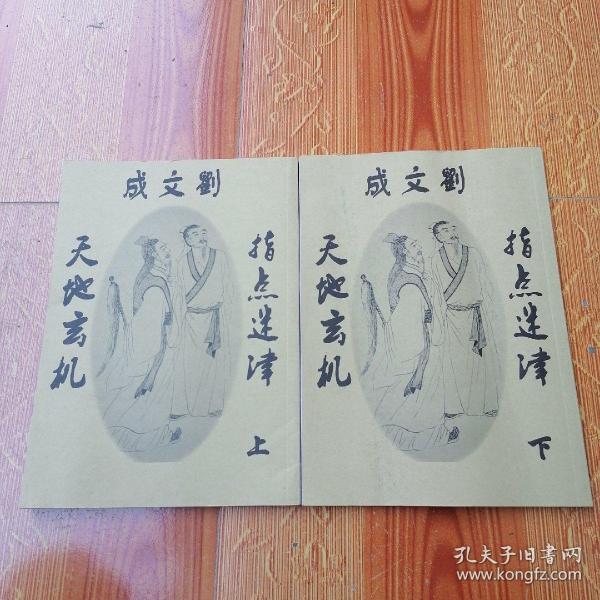 劉文成
指点迷津
天地玄机
上
劉文成
指点迷津
天地玄机
下
孔夫子旧书网
www.kongfz.com